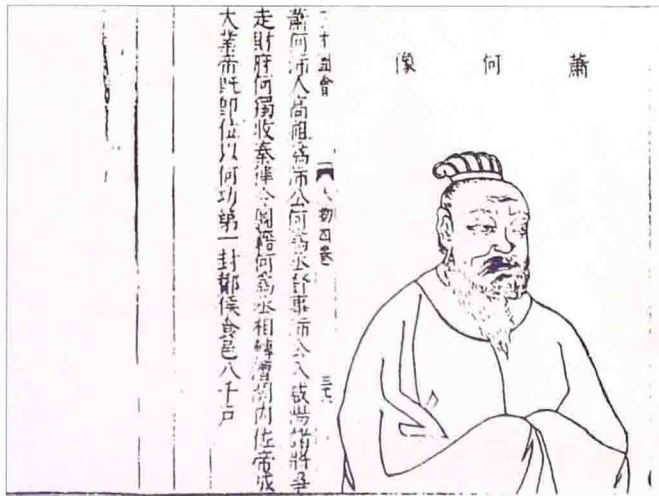 蕭何像
三才圖會 人物四卷 三六
蕭何沛人高祖為沛公何為丞督事沛公入咸陽諸將爭
走財府何獨收秦律令圖籍何為丞相轉漕關內佐帝成
大業帝既即位以何功第一封酇侯食邑八千戶